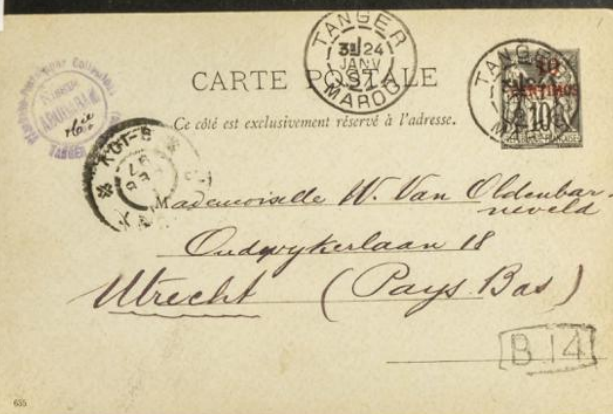 TANGER
3E 24
JANV
97
MAROC
TANGER
MAROC
10
CENTIMOS
10
CARTE POSTALE
Ce côté est exclusivement réservé à l'adresse.
TANGER
Mademoiselle W. Van Oldenbar-
neveld
Oudwykerlaan 18
Utrecht (Pays Bas)
B 14
655